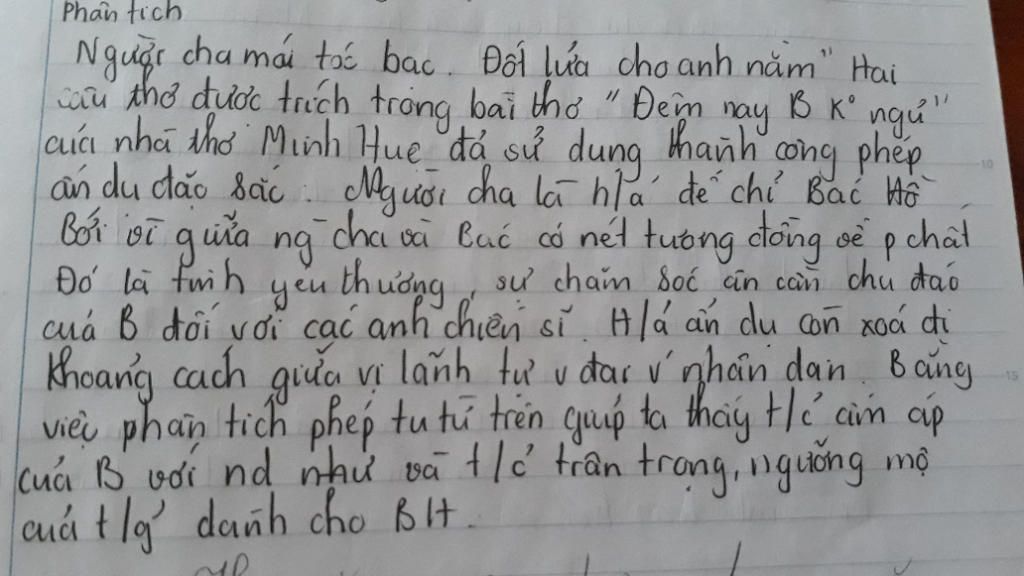 Phân tích
Người cha mái tóc bạc. Đốt lửa cho anh nằm" Hai
câu thơ được trích trong bài thơ "Đêm nay B K° ngủ"
của nhà thơ Minh Huệ đã sử dụng thành công phép
ẩn dụ đặc sắc. Người cha là h/ả để chỉ Bác Hồ
Bởi vì giữa ng cha và Bác có nét tương đồng về p chất
Đó là tình yêu thương, sự chăm sóc ân cần chu đáo
của B đối với các anh chiến sĩ. H/ả ẩn dụ còn xoá đi
khoảng cách giữa vị lãnh tụ v đại v nhân dân. Bằng
việc phân tích phép tu từ trên giúp ta thấy t/c ấm áp
của B với nd như và t/c trân trọng, ngưỡng mộ
của t/g dành cho BH.